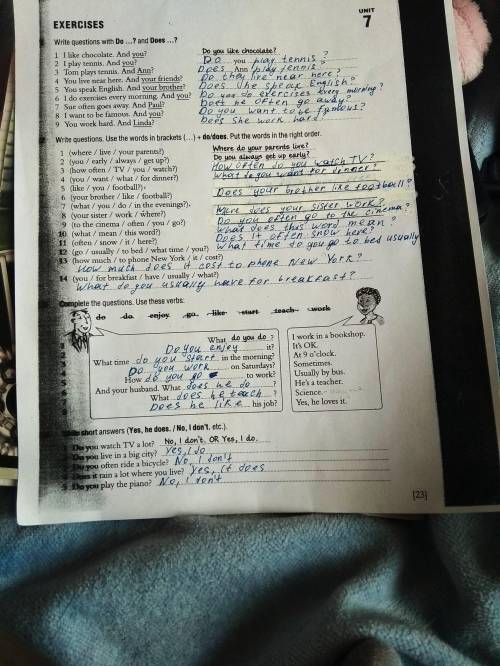 UNIT
7
EXERCISES
Write questions with Do …? and Does …?
1 I like chocolate. And you? Do you like chocolate?
2 I play tennis. And you? Do you play tennis?
3 Tom plays tennis. And Ann? Does Ann play tennis?
4 You live near here. And your friends? Do they live near here?
5 You speak English. And your brother? Does he speak English?
6 I do exercises every morning. And you? Do you do exercises every morning?
7 Sue often goes away. And Paul? Does he often go away?
8 I want to be famous. And you? Do you want to be famous?
9 You work hard. And Linda? Does she work hard?
Write questions. Use the words in brackets (…) + do/does. Put the words in the right order.
1 (where / live / your parents?) Where do your parents live?
2 (you / early / always / get up?) Do you always get up early?
3 (how often / TV / you / watch?) How often do you watch TV?
4 (you / want / what / for dinner?) What do you want for dinner?
5 (like / you / football?)
6 (your brother / like / football?) Does your brother like football?
7 (what / you / do / in the evenings?).
8 (your sister / work / where?) Where does your sister work?
9 (to the cinema / often / you / go?) Do you often go to the cinema?
10 (what / mean / this word?) What does this word mean?
11 (often / snow / it / here?) Does it often snow here?
12 (go / usually / to bed / what time / you?) What time do you go to bed usually
13 (how much / to phone New York / it / cost?)
How much does it cost to phone New York?
14 (you / for breakfast / have / usually / what?)
What do you usually have for breakfast?
Complete the questions. Use these verbs:
do do enjoy go like start teach work
What do you do ? I work in a bookshop.
Do you enjoy it? It's OK.
What time do you start in the morning? At 9 o'clock.
Do you work on Saturdays? Sometimes.
How do you go to work? Usually by bus.
And your husband. What does he do ? He's a teacher.
What does he teach ? Science.
Does he like his job? Yes, he loves it.
short answers (Yes, he does. / No, I don't. etc.).
Do you watch TV a lot? No, I don't. OR Yes, I do.
Do you live in a big city? Yes, I do
Do you often ride a bicycle? No, I don't
Does it rain a lot where you live? Yes, it does
Do you play the piano? No, I don't
[23]